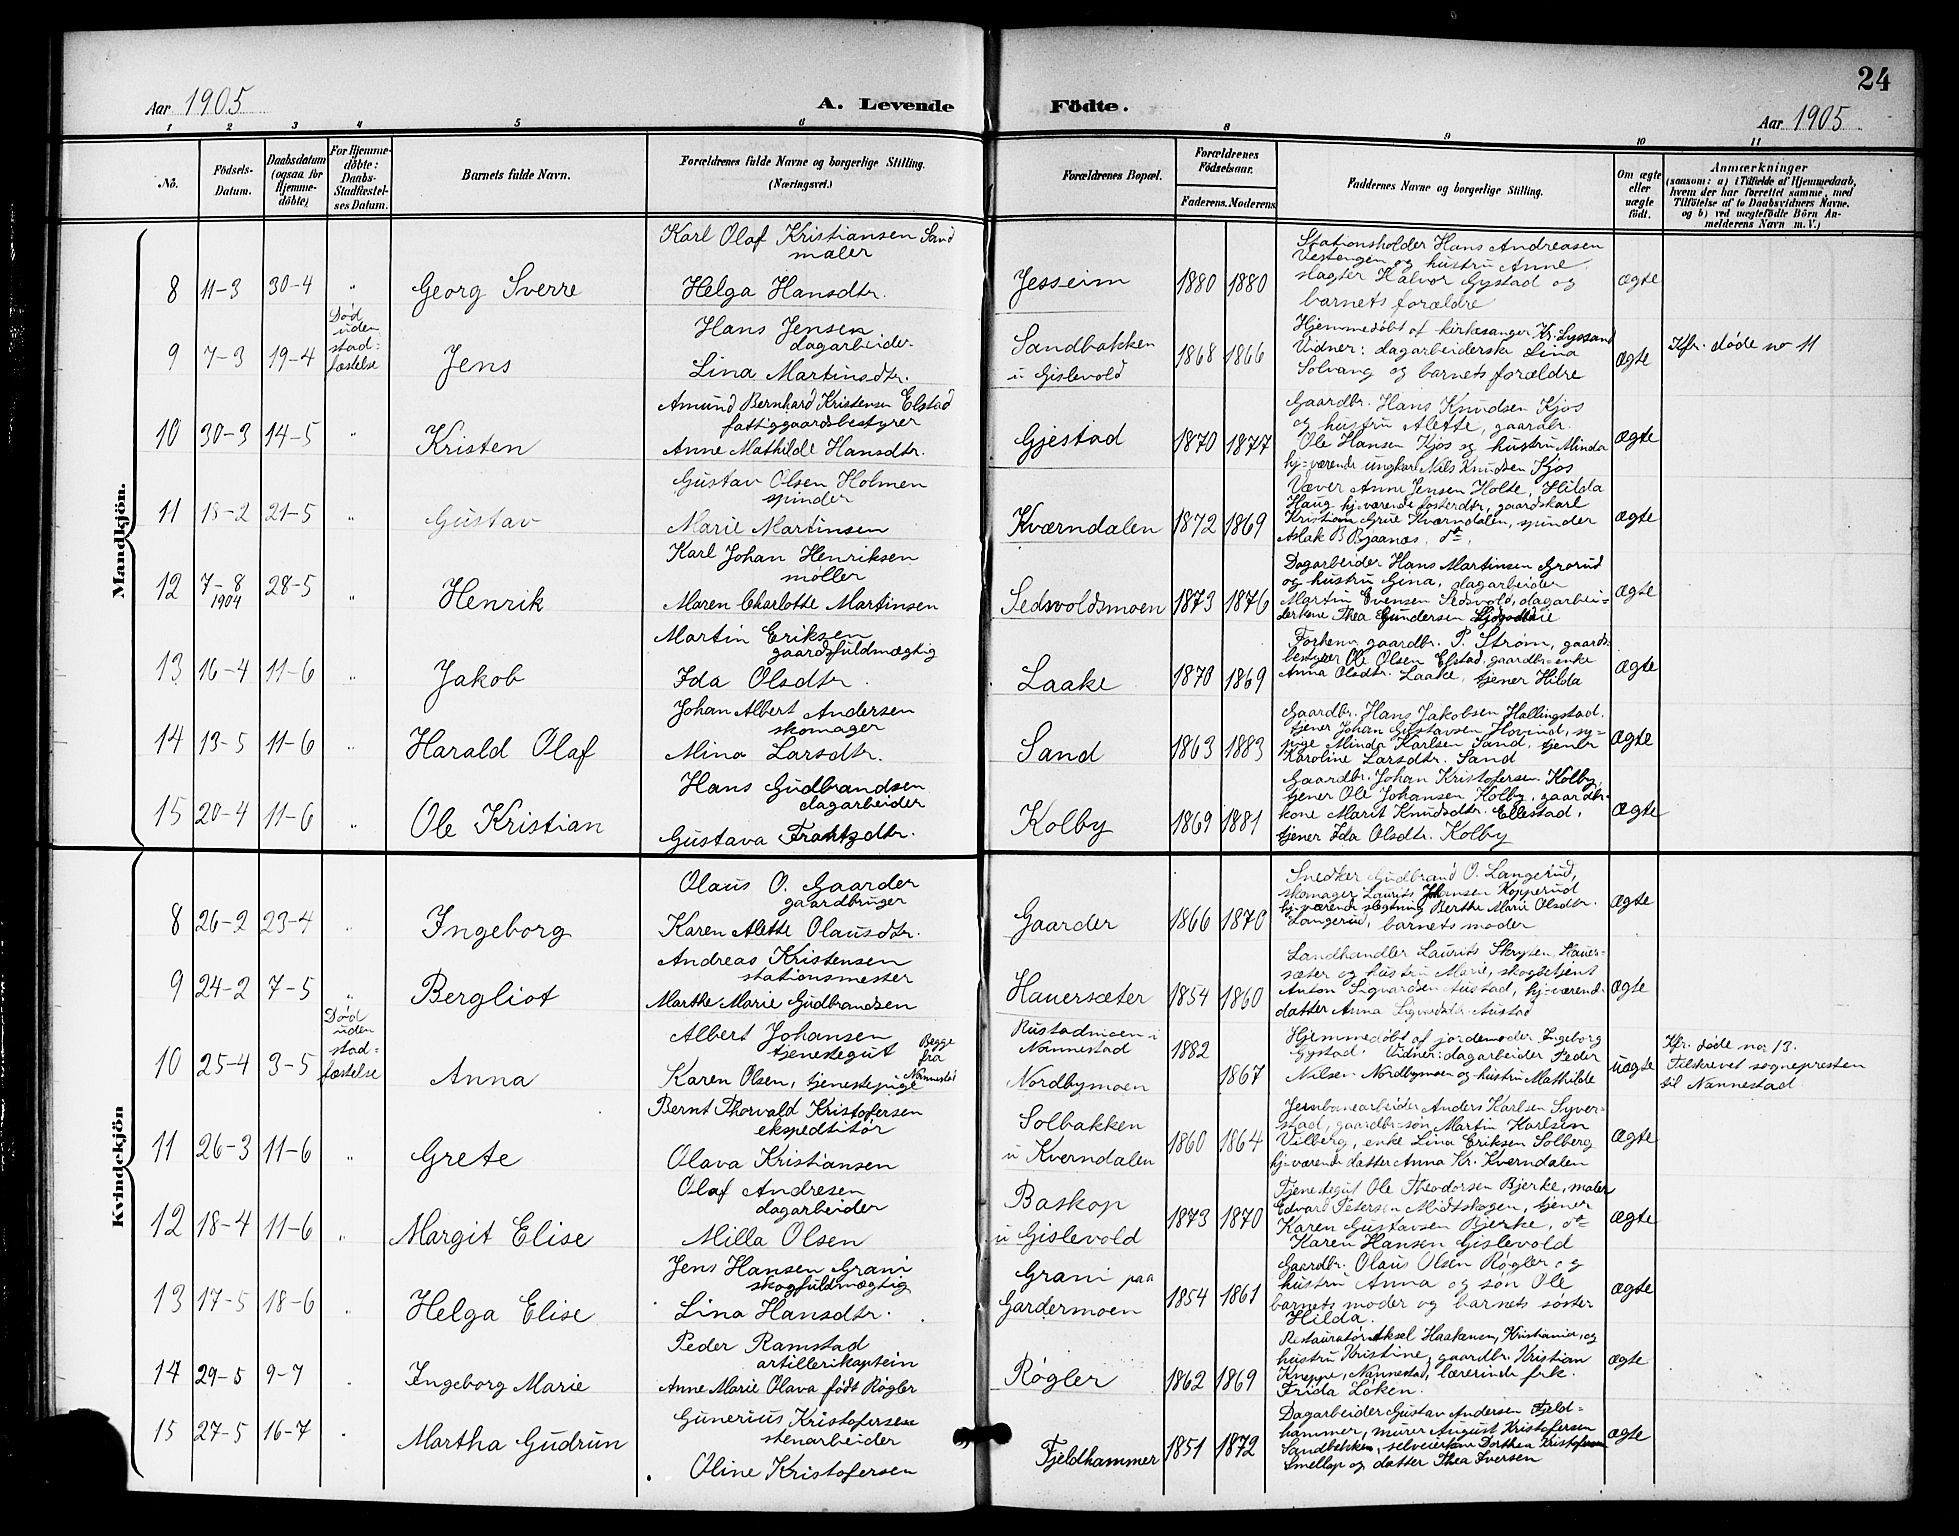 24
Aar 1905
A. Levende
Födte.
Aar 1905
1 2 3 4 5 6 8 9 10 11
No.
Födsels-Datum.
Daabsdatum (ogsaa for Hjemme-döbte)
For Hjemme-döbte: Daabs-Stadfæstel-ses Datum.
Barnets fulde Navn.
Forældrenes fulde Navne og borgerlige Stilling.
(Næringsvei.)
Forældrenes Bopæl.
Forældrenes Födselsaar.
Faderens. Moderens.
Faddernes Navne og borgerlige Stilling.
Om ægte eller uægte födt.
Anmærkninger
(saasom: a) i Tilfælde af Hjemmedaab,
hvem der har forrettet samme, med
Tilföielse af to Daabsvidners Navne.
og b) ved uægtefödte Börn An-
melderens Navn m.V.)
Mandkjön.
Karl Olaf Kristiansen Sand
maler
8 11-3 30-4 " Georg Sverre Helga Hansdtr. Jesseim 1880 1880
Stationsholder Hans Andreasen
Vestengen og hustru Anne
slagter Halvor Gystad og
barnets forældre
ægte
Hans Jensen
dagarbeider
9 7-3 19-4 Død uden stad=fæstelse Jens Lina Martinsdtr. Sandbakken
u Gislevold 1868 1866
Hjemmedøbt af kirkesanger Kr. Lyssand
Vidner: dagarbeiderske Lina
Solvang og barnets forældre
ægte Kfr. døde no 11
Amund Bernhard Kristensen Elstad
fattiggaardsbestyrer
10 30-3 14-5 " Kristen Anne Mathilde Hansdtr. Gjestad 1870 1877
Gaardbr. Hans Knudsen Kjos
og hustru Alette, gaardbr.
Ole Hansen Kjos og hustru Minda
hj=værende ungkar Nils Knudsen Kjos
ægte
Gustav Olsen Holmen
spinder
11 18-2 21-5 " Gustav Marie Martinsen Kværndalen 1872 1869
Væver Anne Jensen Holte, Hilda
Haug hj.værende fosterdtr, gaardskarl
Kristian Grue Kværndalen, spinder
Aslak B Bjaanes, dt.
ægte
Karl Johan Henriksen
møller
12 7-8 1904 28-5 " Henrik Maren Charlotte Martinsen Sedsvoldsmoen 1873 1876
Dagarbeider Hans Martinsen Grorud
og hustru Gina, dagarbeider
Martin Evensen Sedsvold, dagarbei=
derkone Thea Gundersen
ægte
Martin Eriksen
gaardsfuldmægtig
13 16-4 11-6 " Jakob Ida Olsdtr. Laake 1870 1869
Forhenv. gaardbr. P. Strøm, gaards=
bestyrer Ole Olsen Elstad, gaardbr=enke
Anna Olsdtr. Laake, tjener Hilda
ægte
Johan Albert Andersen
skomager
14 13-5 11-6 " Harald Olaf Mina Larsdtr. Sand 1863 1883
Gaardbr. Hans Jakobsen Hallingstad,
tjener Johan Gustavsen Hovind, sy=
pige Minda Karlsen Sand, tjener
Karoline Larsdtr. Sand
ægte
Hans Gudbrandsen
dagarbeider
15 20-4 11-6 " Ole Kristian Gustava Frantzdtr. Kolby 1869 1881
Gaardbr. Johan Kristofersen Kolby,
tjener Ole Johansen Kolby, gaardbr-
kone Marit Knudsdtr. Ellestad,
tjener Ida Olsdtr. Kolby
ægte
Kvindekjön
Olaus O. Gaarder
gaardbruger
8 26-2 23-4 " Ingeborg Karen Alette Olausdtr. Gaarder 1866 1870
Snedker Gudbrand O. Langerud,
skomager Laurits Johansen Kopperud
hj-værende slegtning Berthe Marie Olsdtr.
Langerud, barnets moder
ægte
Andreas Kristensen
stationsmester
9 24-2 7-5 " Bergliot Marthe Marie Gudbrandsen Hauersæter 1854 1860
Landhandler Laurits Skrysen, Hauer=
sæter og hustru Marie, skogbetjent
Anton Sigvardsen Austad, hj=værende
datter Anna Austad
ægte
Albert Johansen
tjenestegut
10 25-4 3-5 Død uden stad=fæstelse Anna Karen Olsen, tjenestepige Begge fra Nannestad
Rustadmoen i
Nannestad
Nordbymoen 1882 1867
Hjemmedøbt af jordemoder Ingeborg
Gystad. Vidner: dagarbeider Peder
Nilsen Nordbymoen og hustru Mathilde
uægte
Kfr. døde no: 13.
Tilskrevet sognepresten
til Nannestad
Bernt Thorvald Kristofersen
ekspeditør
11 26-3 11-6 " Grete Olava Kristiansen Solbakken
u Kverndalen 1860 1864
Jernbanearbeider Anders Karlsen Syver=
stad, gaardbr=søn Martin Karlsen
Vilberg, enke Lina Eriksen Solberg
hj=værende datter Anna Kr. Kverndalen
ægte
Olaf Andresen
dagarbeider
12 18-4 11-6 " Margit Elise Milla Olsen Baskop
u Gislevold 1873 1870
Tjenestegut Ole Theodorsen Bjerke, maler
Edvard Petersen Midtskogen, tjener
Karen Gustavsen Bjerke, dt=
Karen Hansen Gislevold
ægte
Jens Hansen Grani
skogfuldmægtig
13 17-5 18-6 " Helga Elise Lina Hansdtr. Grani paa
Gardermoen 1854 1861
Gaardbr. Olaus Olsen Røgler og
hustru Anna og søn Ole
barnets moder og barnets søster
Hilda.
ægte
Peder Ramstad
artillerikaptein
14 29-5 9-7 Ingeborg Marie Anne Marie Olava født Røgler Røgler 1862 1869
Restauratør Aksel Haakensen, Kristiania, og
hustru Kristine, gaardbr. Kristian
Kneppe, Nannestad, lærerinde frk.
Frida Løken.
ægte
Gunerius Kristofersen
stenarbeider
15 27-5 16-7 Martha Gudrun Oline Kristofersen Fjeldhammer 1851 1872
Dagarbeider Gustav Andersen Fjeld=
hammer, murer August Kristofersen
Sandbakken, selveierkone Dorthea Kristofersen
Smellop og datter Thea Iversen
ægte